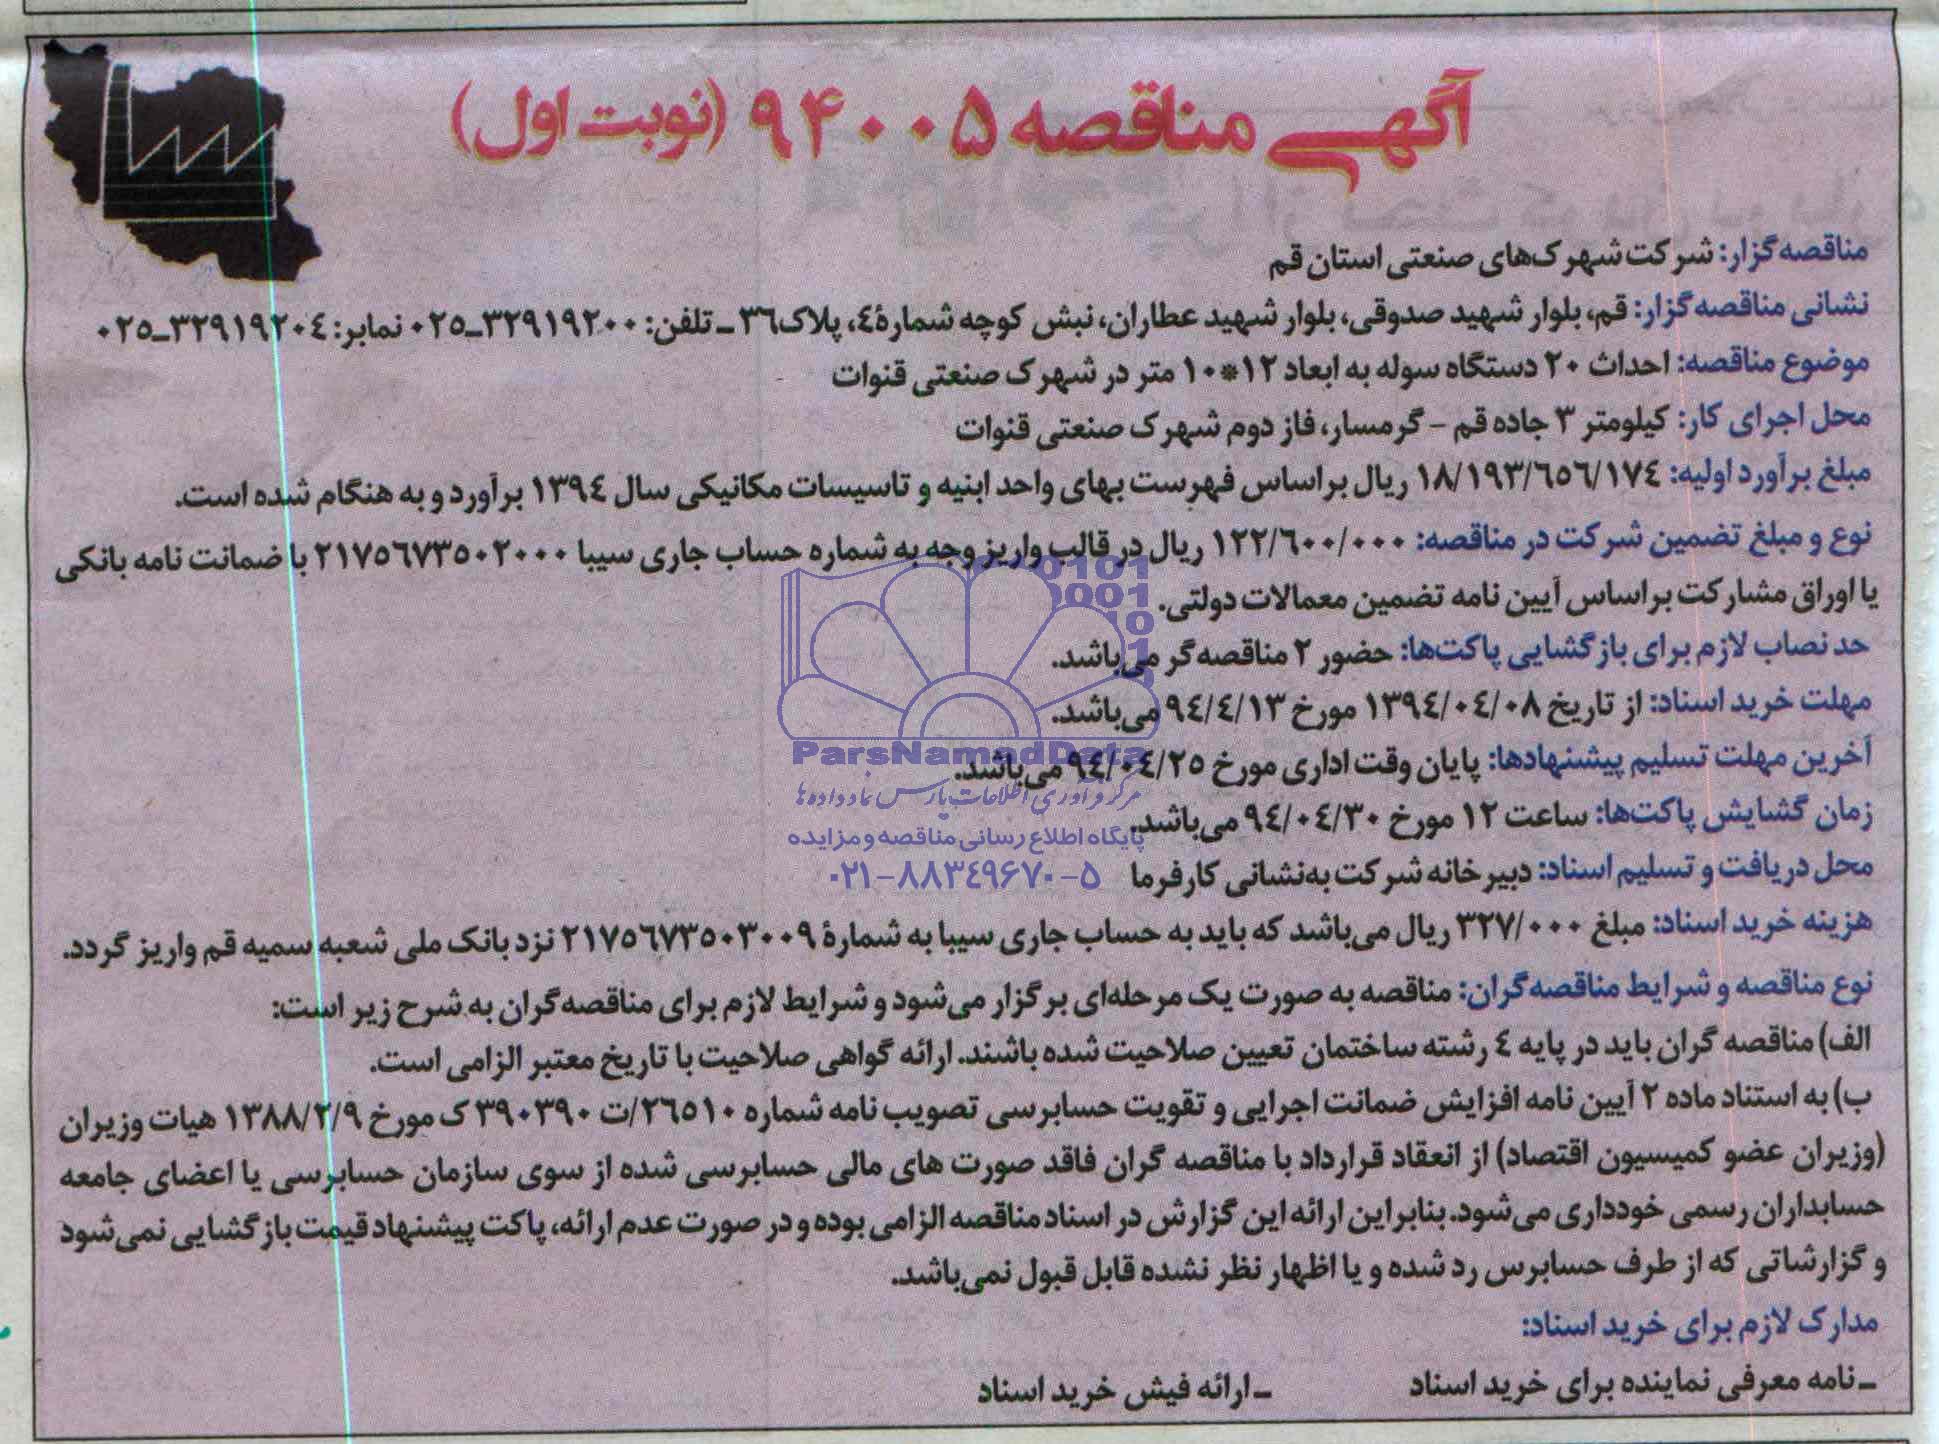 آگهی مناقصه ۹۴۰۰۵ (نوبت اول)
مناقصه‌گزار: شرکت شهرک‌های صنعتی استان قم
نشانی مناقصه‌گزار: قم، بلوار شهید صدوقی، بلوار شهید عطاران، نبش کوچه شمارهٔ ۴، پلاک ۳۶ ـ تلفن: ۳۲۹۱۹۲۰۰ـ۰۲۵ نمابر: ۳۲۹۱۹۲۰۴ـ۰۲۵
موضوع مناقصه: احداث ۲۰ دستگاه سوله به ابعاد ۱۲*۱۰ متر در شهرک صنعتی قنوات
محل اجرای کار: کیلومتر ۳ جاده قم - گرمسار، فاز دوم شهرک صنعتی قنوات
مبلغ برآورد اولیه: ۱۸/۱۹۳/۶۵۶/۱۷۴ ریال براساس فهرست بهای واحد ابنیه و تاسیسات مکانیکی سال ۱۳۹۴ برآورد و به هنگام شده است.
نوع و مبلغ تضمین شرکت در مناقصه: ۱۲۲/۶۰۰/۰۰۰ ریال در قالب واریز وجه به شماره حساب جاری سیبا ۲۱۷۵۶۷۳۵۰۲۰۰۰ با ضمانت نامه بانکی
یا اوراق مشارکت براساس آیین نامه تضمین معمالات دولتی.
حد نصاب لازم برای بازگشایی پاکت‌ها: حضور ۲ مناقصه‌گر می‌باشد.
مهلت خرید اسناد: از تاریخ ۱۳۹۴/۰۴/۰۸ مورخ ۹۴/۴/۱۳ می‌باشد.
آخرین مهلت تسلیم پیشنهادها: پایان وقت اداری مورخ ۹۴/۰۴/۲۵ می‌باشد.
زمان گشایش پاکت‌ها: ساعت ۱۲ مورخ ۹۴/۰۴/۳۰ می‌باشد.
محل دریافت و تسلیم اسناد: دبیرخانه شرکت به‌نشانی کارفرما
هزینه خرید اسناد: مبلغ ۳۲۷/۰۰۰ ریال می‌باشد که باید به حساب جاری سیبا به شمارهٔ ۲۱۷۵۶۷۳۵۰۳۰۰۹ نزد بانک ملی شعبه سمیه قم واریز گردد.
نوع مناقصه و شرایط مناقصه‌گران: مناقصه به صورت یک مرحله‌ای برگزار می‌شود و شرایط لازم برای مناقصه‌گران به شرح زیر است:
الف) مناقصه گران باید در پایه ۴ رشته ساختمان تعیین صلاحیت شده باشند. ارائه گواهی صلاحیت با تاریخ معتبر الزامی است.
ب) به استناد ماده ۲ آیین نامه افزایش ضمانت اجرایی و تقویت حسابرسی تصویب نامه شماره ۲۶۵۱۰/ت ۳۹۰۳۹۰ ک مورخ ۱۳۸۸/۲/۹ هیات وزیران
(وزیران عضو کمیسیون اقتصاد) از انعقاد قرارداد با مناقصه گران فاقد صورت های مالی حسابرسی شده از سوی سازمان حسابرسی یا اعضای جامعه
حسابداران رسمی خودداری می‌شود. بنابراین ارائه این گزارش در اسناد مناقصه الزامی بوده و در صورت عدم ارائه، پاکت پیشنهاد قیمت بازگشایی نمی‌شود
و گزارشاتی که از طرف حسابرس رد شده و یا اظهار نظر نشده قابل قبول نمی‌باشد.
مدارک لازم برای خرید اسناد:
ـ نامه معرفی نماینده برای خرید اسناد ـ ارائه فیش خرید اسناد
ParsNamadData
مرکز فرآوری اطلاعات پارس نماد داده‌ها
پایگاه اطلاع رسانی مناقصه و مزایده
۰۲۱-۸۸۳۴۹۶۷۰-۵